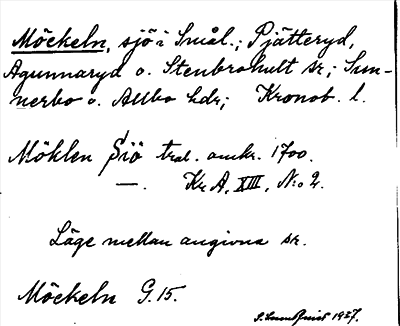 Möckeln, sjö i Smål.; Pjätteryd,
Agunnaryd o. Stenbrohult sr; Sun-
nerbo o. Allbo hdr; Kronob. l.
Möklen Siö trol. omkr. 1700.
—. Kr A, XIII, N:o 2.
Läge mellan angivna sr.
Möckeln G. 15.
1927.